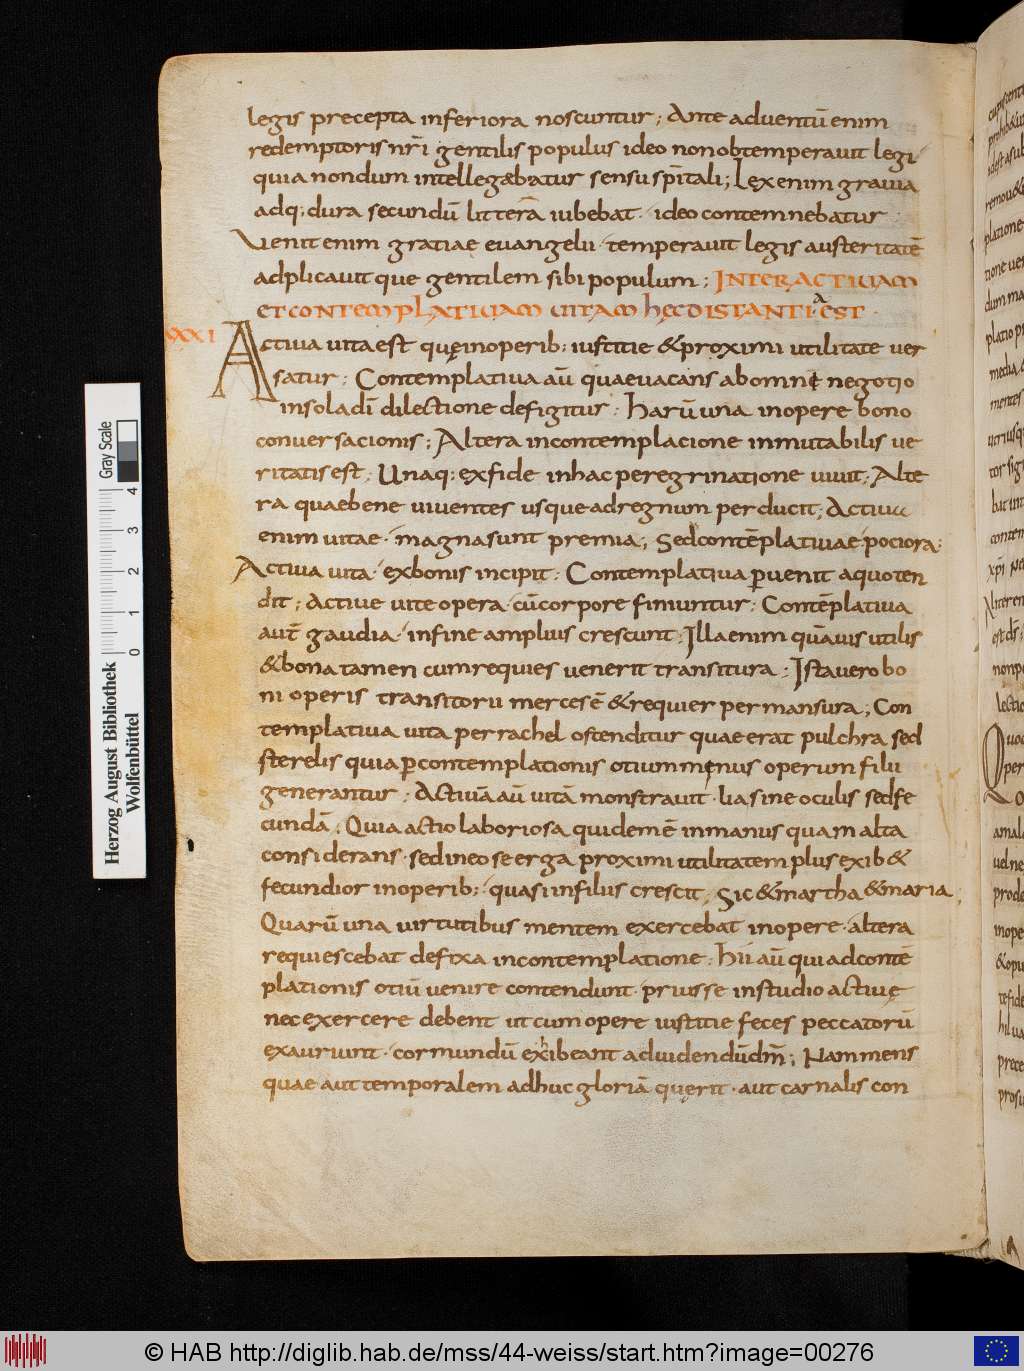 legis precepta inferiora noscuntur; Ante aduentū enim
redemptoris nr̄i gentilis populus ideo non obtemperauit legi
quia nondum intellegæbatur sensu sp̄itali; Lex enim grauia
adq; dura secundū litterā iubebat· ideo contemnebatur·
Venit enim gratiae euangelii· temperauit legis austeritatē
adplicauitque gentilem sibi populum; INTER ACTIUAM
ET CONTEMPLATIUAM UITAM hęC DISTANTIA EST·
XXXI
Actiua uita est quę in operib; iustitie & proximi utilitate uer
satur; Contemplatiua aū quae uacans ab omni negotio
in sola dī dilectione defigitur; harū una in opere bono
conuersacionis; Altera in contemplacione inmutabilis ue
ritatis est; Unaq; ex fide in hac peregrinatione uiuit; Alte
ra quae bene uiuentes usque ad regnum perducit; Actiuae
enim uitae· magna sunt premia; Sed contēplatiuae pociora;
Actiua uita· ex bonis incipit; Contemplatiua ꝑuenit a quo ten
dit; Actiue uite opera· cū corpore finiuntur; Contēplatiua
aut̄ gaudia· in fine amplius crescunt; Illa enim quāuis utilis
& bona tamen cum requies uenerit transitura; Ista uero bo
ni operis transitorii merces ē & requies permansura; Con
templatiua uita per rachel ostenditur quae erat pulchra sed
sterelis quia ꝑ contemplationis otium minus operum filii
generantur; Actiuā aū uitā monstrauit· lia sine oculis sed fe
cundā; Quia actio laboriosa quidem ē in manus quam alta
considerans· sed in eo se erga proximi utilitatem plus exib&
fecundior in operib; quasi in filiis crescit; Sic & martha & maria;
Quarū una uirtutibus mentem exercebat in opere· altera
requiescebat defixa in contemplatione; hii aū qui ad contē
plationis otiū uenire contendunt· prius se in studio actiuę
nec exercere debent ut cum opere iustitie feces peccatorū
exauriunt· cor mundū exhibeant ad uidendū dm̄; Nam mens
quae aut temporalem adhuc gloriā quęrit· aut carnalis con
Gray Scale
0 1 2 3 4
Herzog August Bibliothek
Wolfenbüttel
© HAB http://diglib.hab.de/mss/44-weiss/start.htm?image=00276